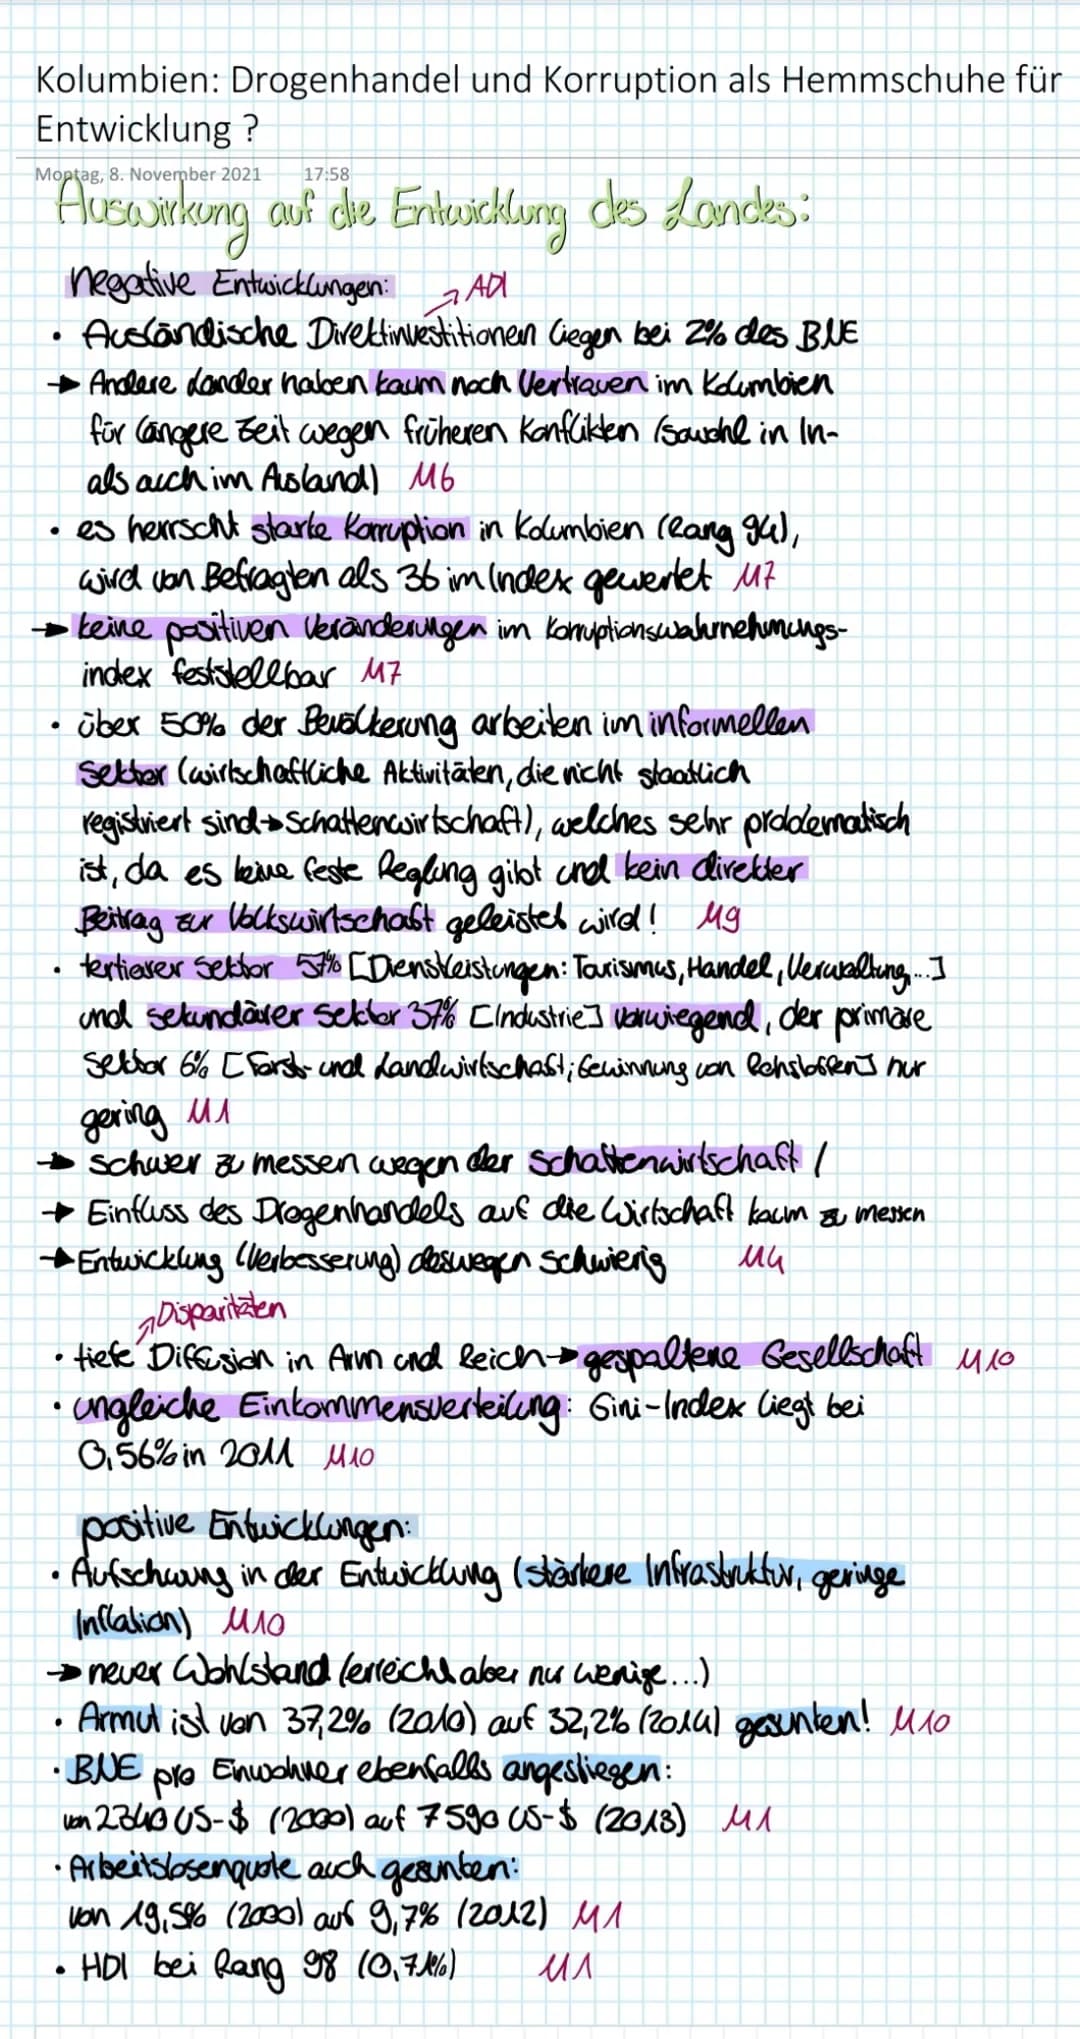 Kolumbien: Drogenhandel und Korruption als Hemmschuhe für
Entwicklung ?
Montag, 8. November 2021 17:58
Auswirkung auf die Entwicklung des Landes:
negative Entwicklungen:
↗ ADI
• Ausländische Direktinvestitionen liegen bei 2% des BNE
→ Andere Länder haben kaum noch Vertrauen im Kolumbien
für längere Zeit wegen früheren Konflikten (sowohl in In-
als auch im Ausland) M6
• es herrscht starke Korruption in Kolumbien (Rang 94),
wird von Befragten als 36 im Index gewertet M7
→ keine positiven Veränderungen im Korruptionswahrnehmungs-
index feststellbar M7
• über 50% der Bevölkerung arbeiten im informellen
Sektor (wirtschaftliche Aktivitäten, die nicht staatlich
registriert sind→Schattenwirtschaft), welches sehr problematisch
ist, da es keine feste Reglung gibt und kein direkter
Beitrag zur Volkswirtschaft geleistet wird! M9
• tertiärer Sektor 57% [Dienstleistungen: Tourismus, Handel, Verwaltung,...]
und sekundärer Sektor 37% [Industrie] vorwiegend, der primäre
Sektor 6% [Forst- und Landwirtschaft; Gewinnung von Rohstoffen] nur
gering M1
→ schwer zu messen wegen der Schattenwirtschaft /
→ Einfluss des Drogenhandels auf die Wirtschaft kaum zu messen
→ Entwicklung (Verbesserung) deswegen schwierig M4
↗ Disparitäten
• tiefe Diffusion in Arm und Reich→ gespaltene Gesellschaft M10
• ungleiche Einkommensverteilung: Gini-Index liegt bei
0,56% in 2011 M10
positive Entwicklungen:
• Aufschwung in der Entwicklung (stärkere Infrastruktur, geringe
Inflation) M10
→ neuer Wohlstand (erreicht aber nur wenige...)
• Armut ist von 37,2% (2010) auf 32,2% (2014) gesunken! M10
• BNE pro Einwohner ebenfalls angestiegen:
von 2340 US-$ (2000) auf 7590 US-$ (2013) M1
• Arbeitslosenquote auch gesunken:
von 19,5% (2000) auf 9,7% (2012) M1
• HDI bei Rang 98 (0,71%) M1